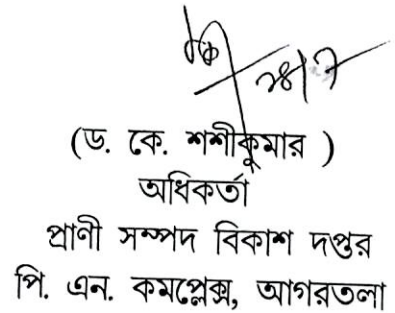 ২৪/৭
(ড. কে. শশীকুমার )
অধিকর্তা
প্রাণী সম্পদ বিকাশ দপ্তর
পি. এন. কমপ্লেক্স, আগরতলা